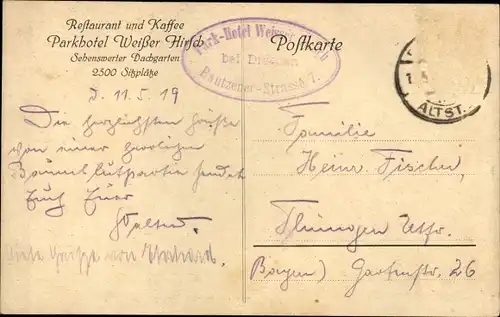 Restaurant und Kaffee
Parkhotel Weißer Hirsch
Sehenswerter Dachgarten
2500 Sitzplätze
Park-Hotel Weisser
bei Dresden
Bautzener-Strasse 7.
Postkarte
ALTST.
D. 11.5.19
Die herzlichsten Grüße
von einer herrlichen
Baumblutpartie sendet
Euch Euer
Walter.
Viele Grüße von
Familie
Heinr. Fischer,
(Bayern) Gartenstr. 26